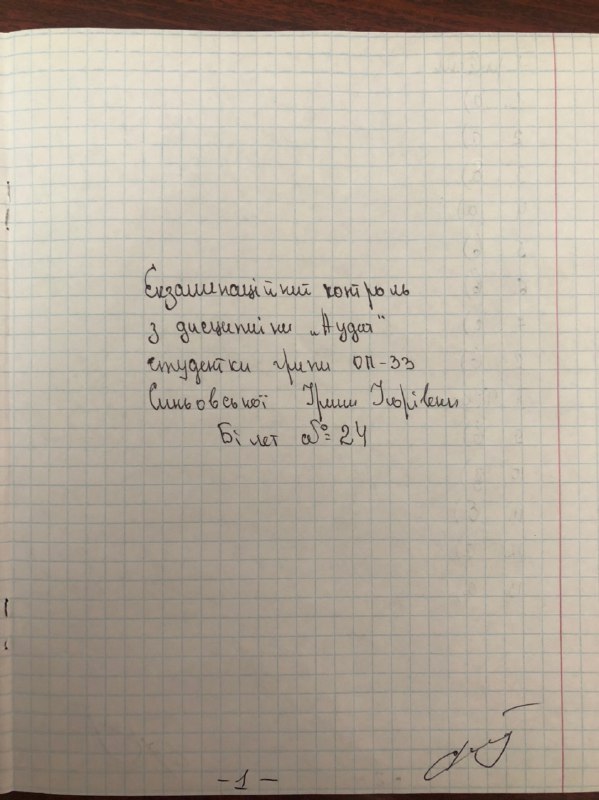 Екзаменаційний контроль
з дисципліни „Аудит"
студентки групи ОП-33
Синьовської Ірини Ігорівни
Білет № 24
-1-